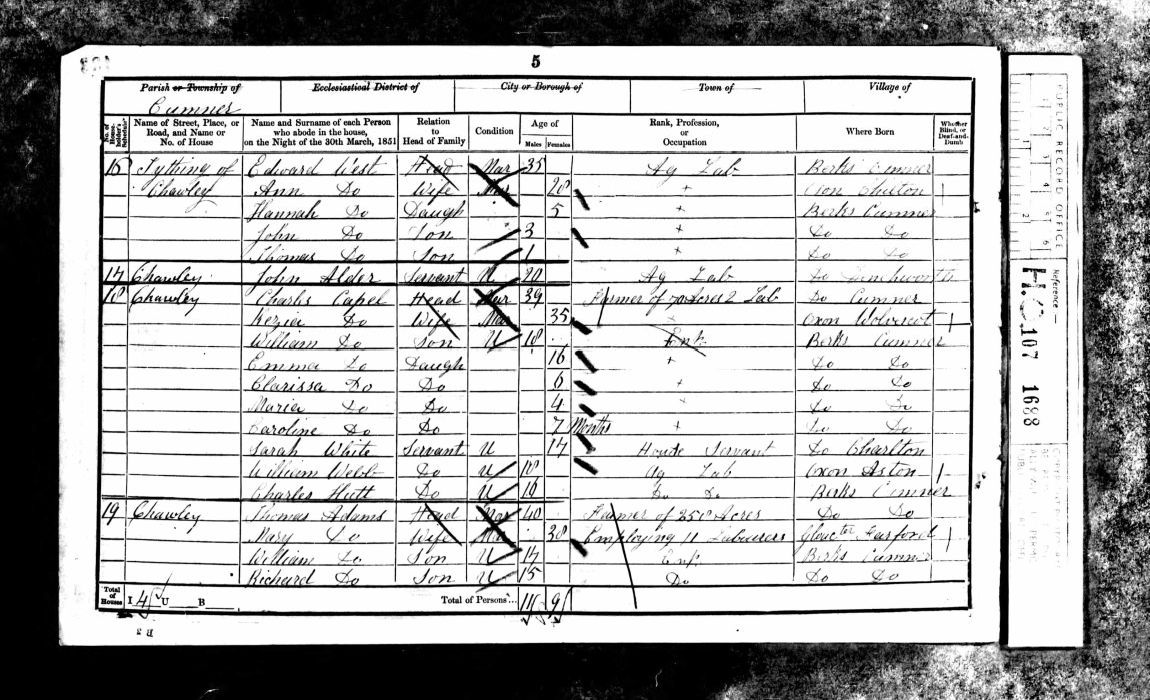 5
Parish or Township of Ecclesiastical District of City or Borough of Town of Village of
Cumner
No. of House-holder's Schedule Name of Street, Place, or Road, and Name or No. of House Name and Surname of each Person who abode in the house, on the Night of the 30th March, 1851 Relation to Head of Family Condition Age of Males Females Rank, Profession, or Occupation Where Born Whether Blind, or Deaf-and-Dumb
16 Tything of Edward West Head Mar 35 Ag Lab Berks Cumner
Chawley Ann Do Wife Mar 28 + Oxon
Hannah Do Daugh 5 + Berks Cumner
John Do Son 3 + Do Do
Thomas Do Son 1 + Do Do
17 Chawley John Alder Servant U 20 Ag Lab Do
18 Chawley Charles Capel Head Mar 39 Farmer of 70 Acres 2 Lab Do Cumner
Kezia Do Wife Mar 35 + Oxon Wolvercot
William Do Son U 18 Berks Cumner
Emma Do Daugh 16 + Do Do
Clarissa Do Do 6 + Do Do
Maria Do Do 4 + Do Do
Caroline Do Do 7 Months + Do Do
Sarah White Servant U 17 House Servant Do Charlton
William Webb Do U 18 Ag Lab Oxon Aston
Charles Hutt Do U 16 Do Do Berks Cumner
19 Chawley Thomas Adams Head Mar 40 Farmer of 250 Acres Do Do
Mary Do Wife Mar 38 Employing 11 Labourers Fairford
William Do Son U 17 Berks Cumner
Richard Do Son U 15 Do Do Do
Total of Houses I 4 U B Total of Persons... 11 9
PUBLIC RECORD OFFICE
Reference:—
H.O. 107 1688